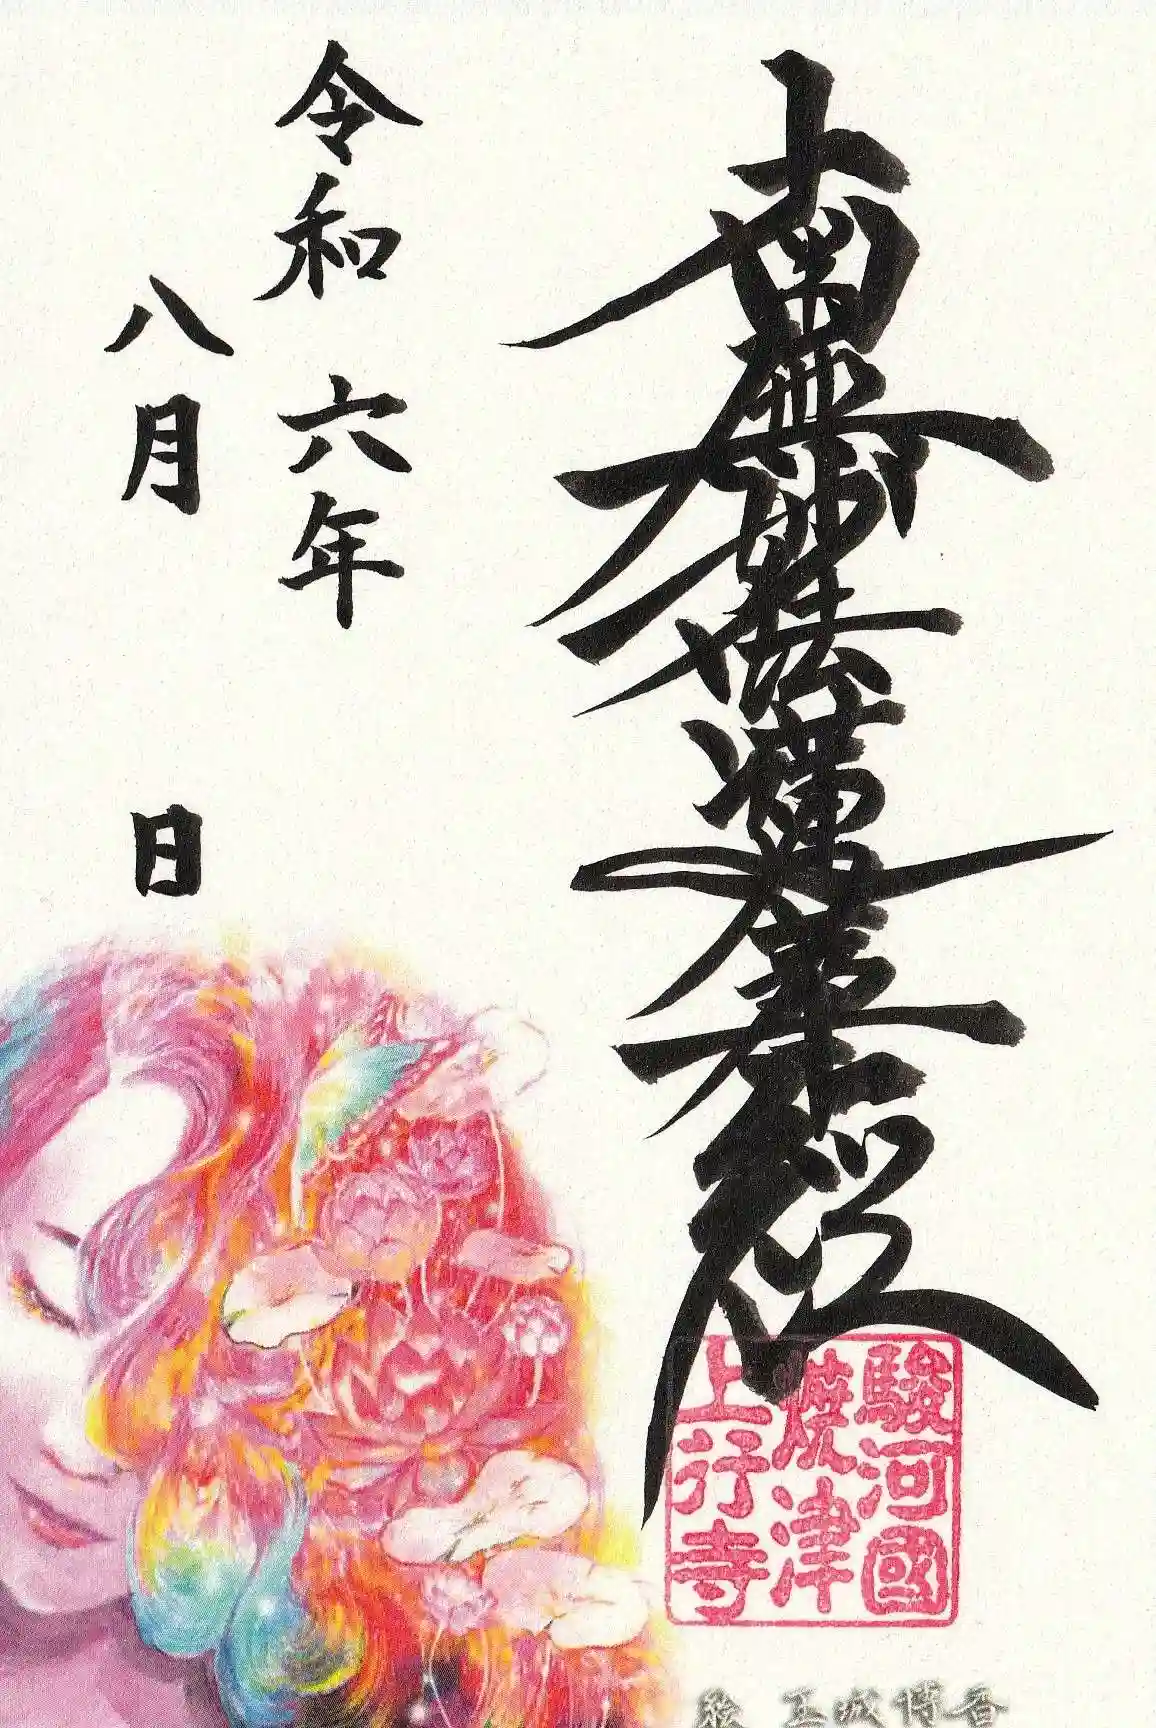 南無妙法蓮華経
令和六年
八月 日
駿河國
焼津
上行寺
絵 王城博香